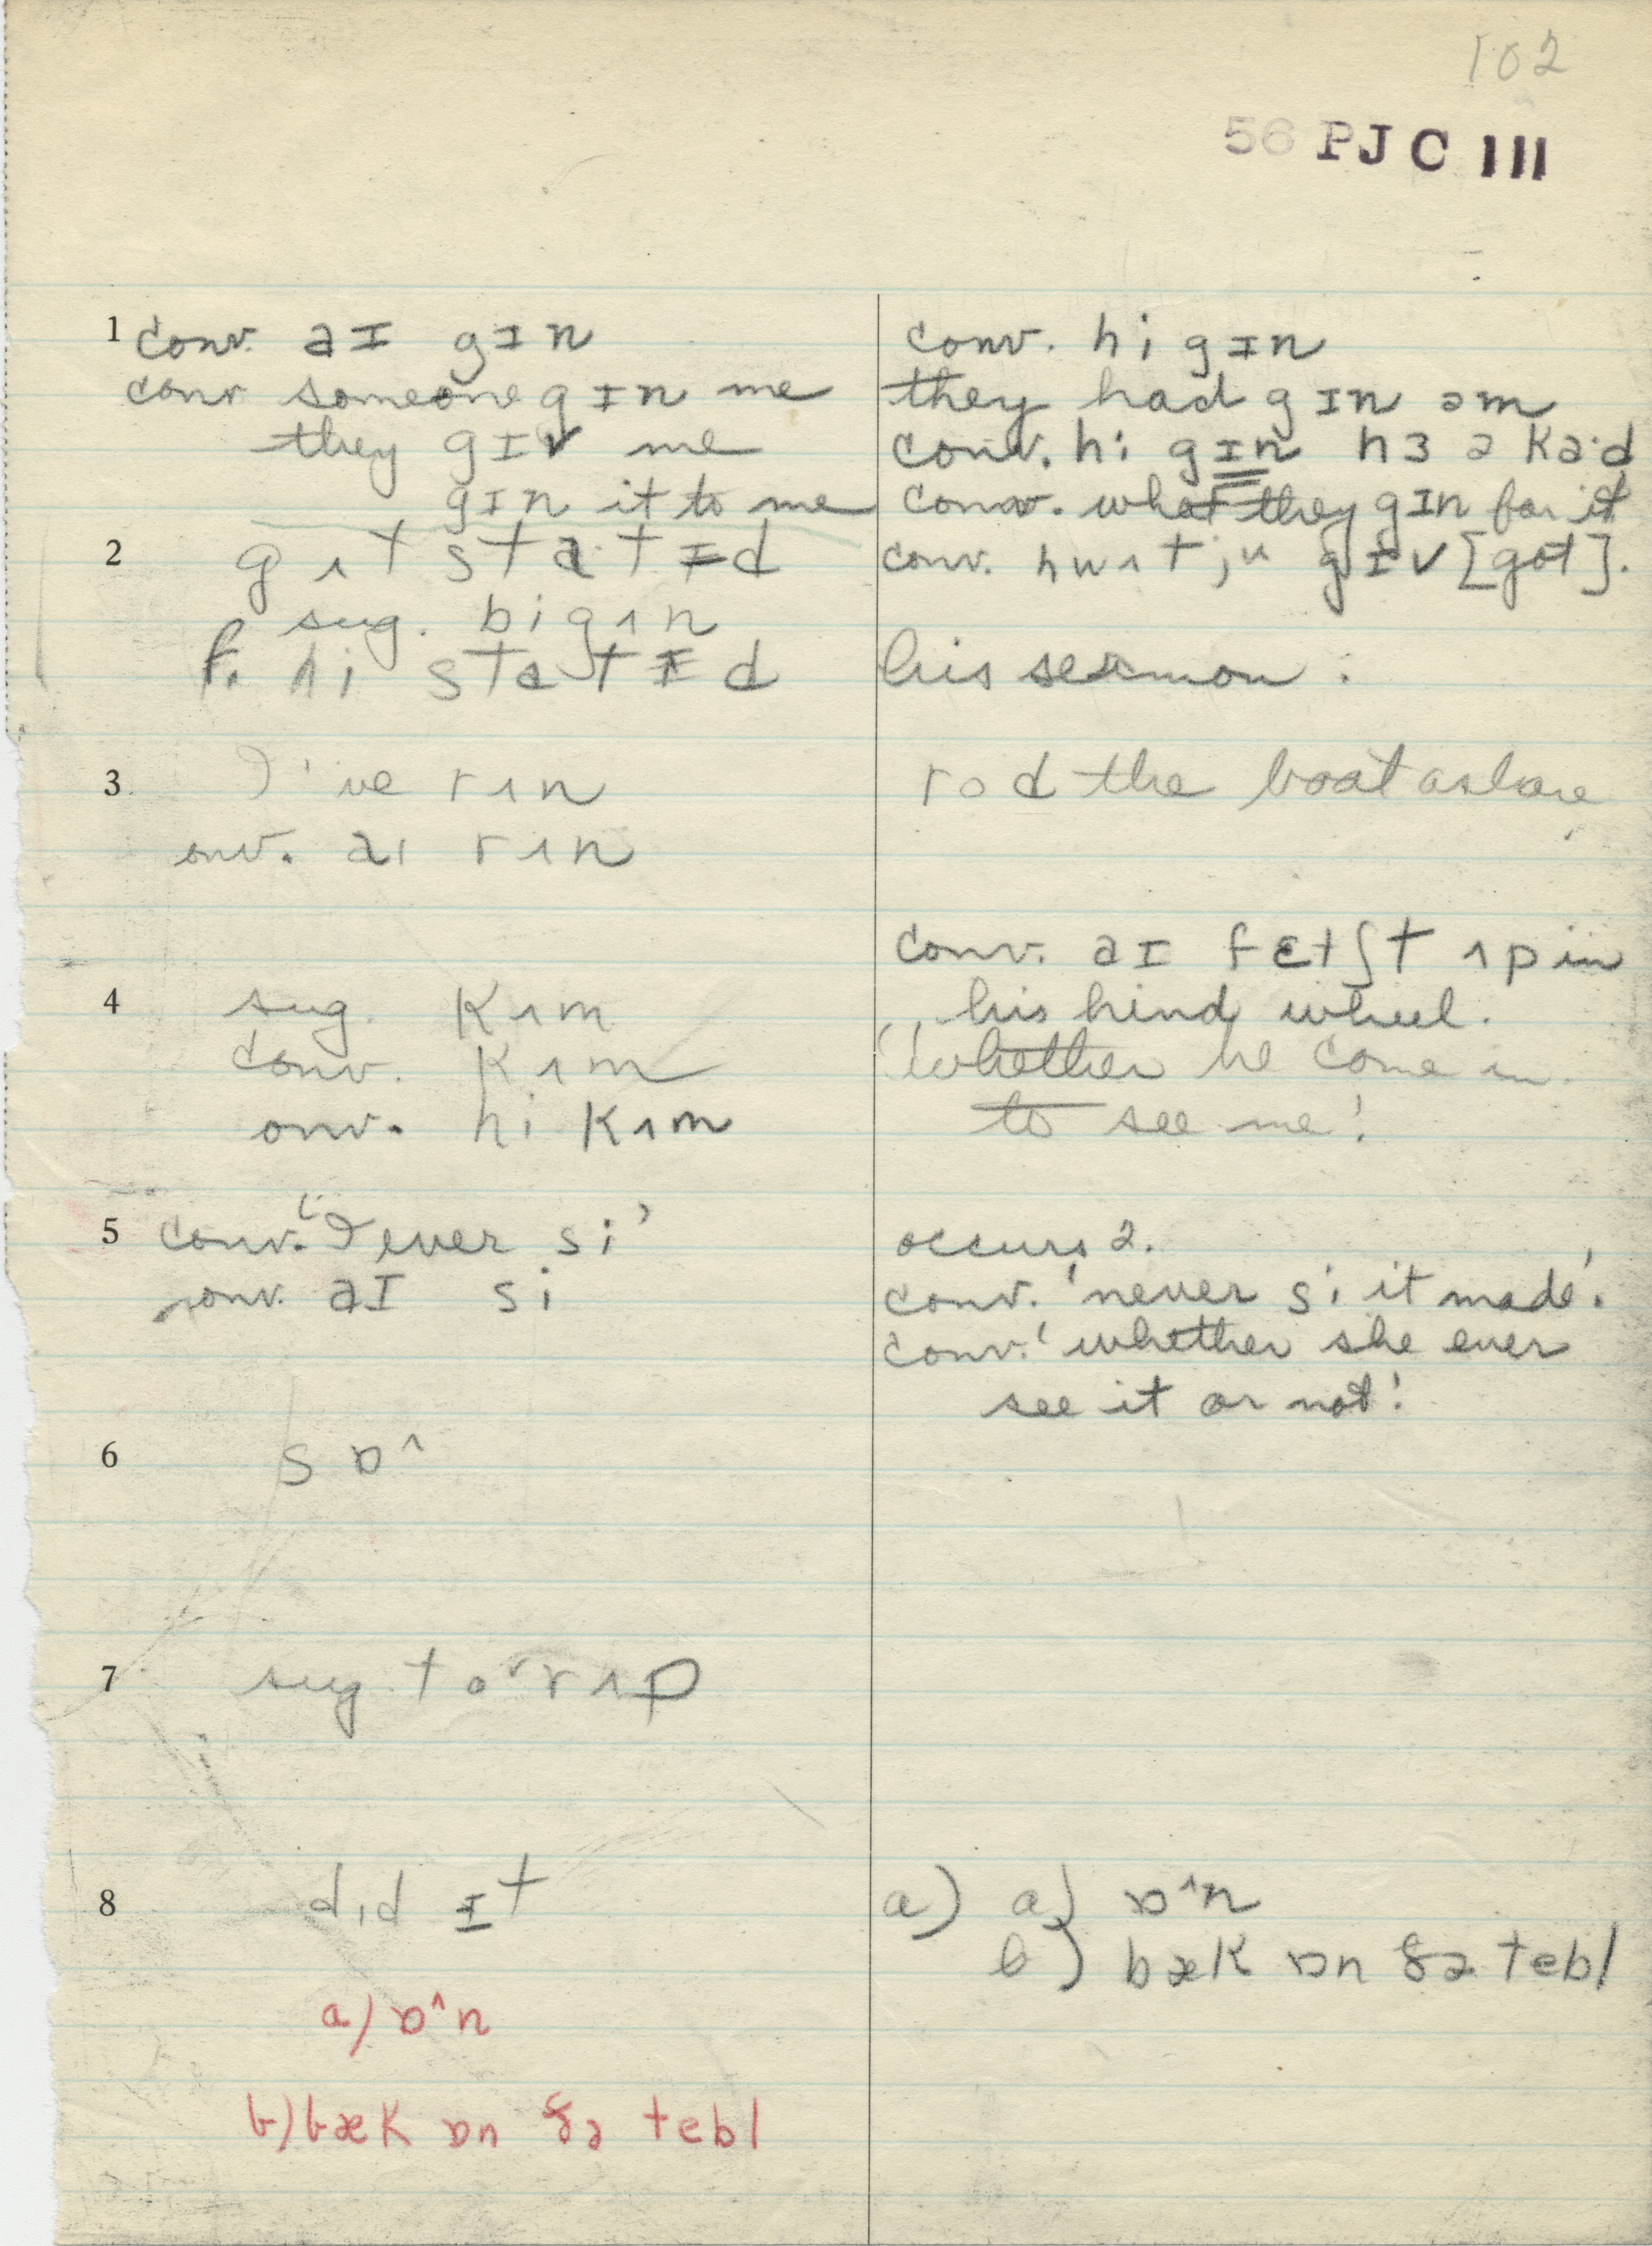 102
56 PJC III
1 conv. aɪ gɪn
conv someone gɪn me
they gɪv me
gɪn it to me
2 gʌt staˑtɪd
sug. bigʌn
f. hi statɪd
3 I've rʌn
conv. aɪ rʌn
4 sug. kʌm
conv. kʌm
conv. hi kʌm
5 conv. 'I ever si'
conv. aɪ si
6 sɒ^
7 sug. toˑrʌp
8 dɪd ɪt
a) ɒ^n
b) bæk ɒn ðə tebl
conv. hi gɪn
they had gɪn əm
conv. hi gɪn hɜ ə kaˑd
conv. what they gɪn for it
conv. hwʌt ju gɪv [got].
his sermon.
rod the boat ashore
conv. aɪ fɛtʃt ʌp in
his hind wheel.
'whether he come in
to see me.'
occurs 2.
conv. 'never si it made'.
conv. 'whether she ever
see it or not.'
a) a) ɒ^n
b) bæk ɒn ðə tebl